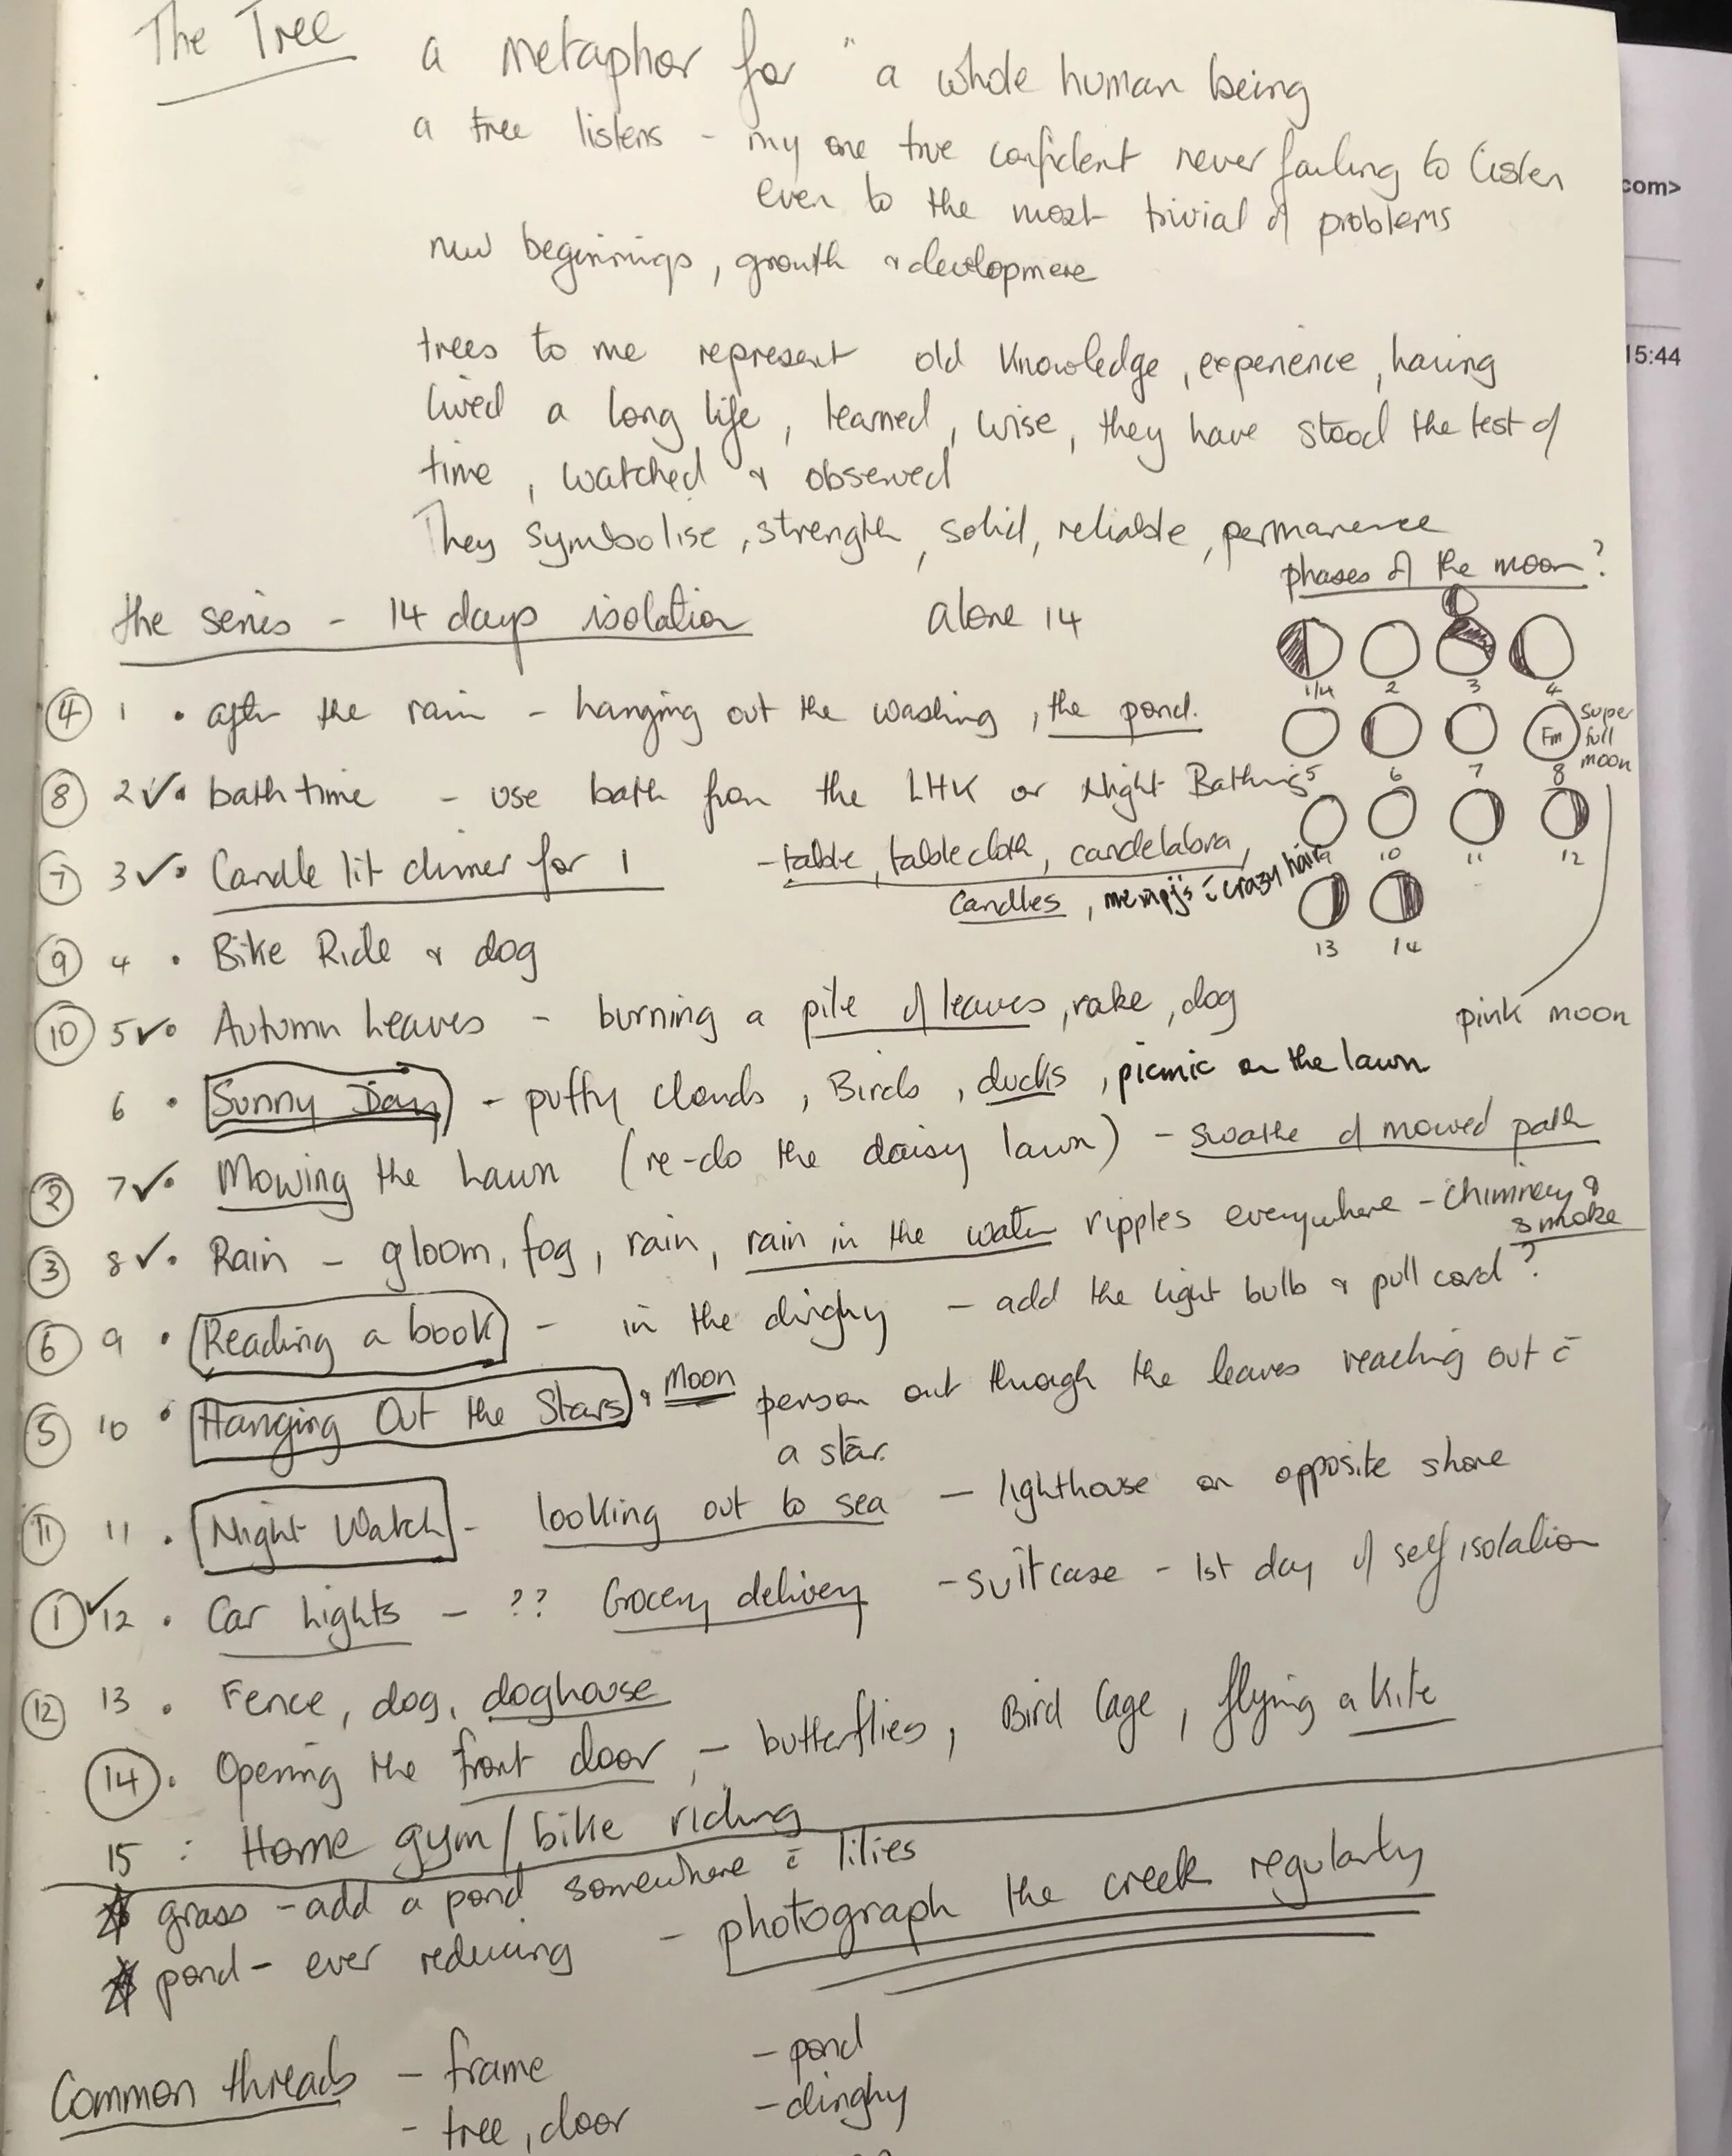 The Tree
a metaphor for "a whole human being
a tree listens - my one true confident never failing to listen
even to the most trivial of problems
new beginnings, growth & developmene
trees to me represent old knowledge, experience, having
lived a long life, learned, wise, they have stood the test of
time, watched & observed
They symbolise, strength, solid, reliable, permanence
phases of the moon?
the series - 14 days isolation alone 14
1/14 2 3 4
④ 1 • after the rain - hanging out the washing, the pond.
Fm super full moon
5 6 7 8
⑧ 2 ✓• bath time - use bath from the LHK or Night Bathing
9 10 11 12
⑦ 3 ✓• Candle lit dinner for 1 - table, tablecloth, candelabra,
candles, me in pj's c̄ crazy hair
13 14
⑨ 4 • Bike Ride & dog
⑩ 5 ✓• Autumn Leaves - burning a pile of leaves, rake, dog
pink moon
6 • Sunny Day - puffy clouds, Birds, ducks, picnic on the lawn
② 7 ✓• Mowing the Lawn (re-do the daisy lawn) - swathe of mowed path
③ 8 ✓• Rain - gloom, fog, rain, rain in the water ripples everywhere - chimney &
smoke
⑥ 9 • Reading a book - in the dinghy - add the light bulb & pull cord?
⑤ 10 • Hanging Out the Stars & Moon person out through the leaves reaching out c̄
a star.
⑪ 11 • Night Watch - looking out to sea - lighthouse on opposite shore
① ✓12 • Car Lights - ?? Grocery delivery - suitcase - 1st day of self isolation
⑫ 13 • Fence, dog, doghouse
⑭ • Opening the front door - butterflies, Bird Cage, flying a kite
15 : Home gym/bike riding
* grass - add a pond somewhere c̄ lilies
* pond - ever reducing - photograph the creek regularly
Common threads - frame - pond
- tree, door - dinghy
com>
15:44